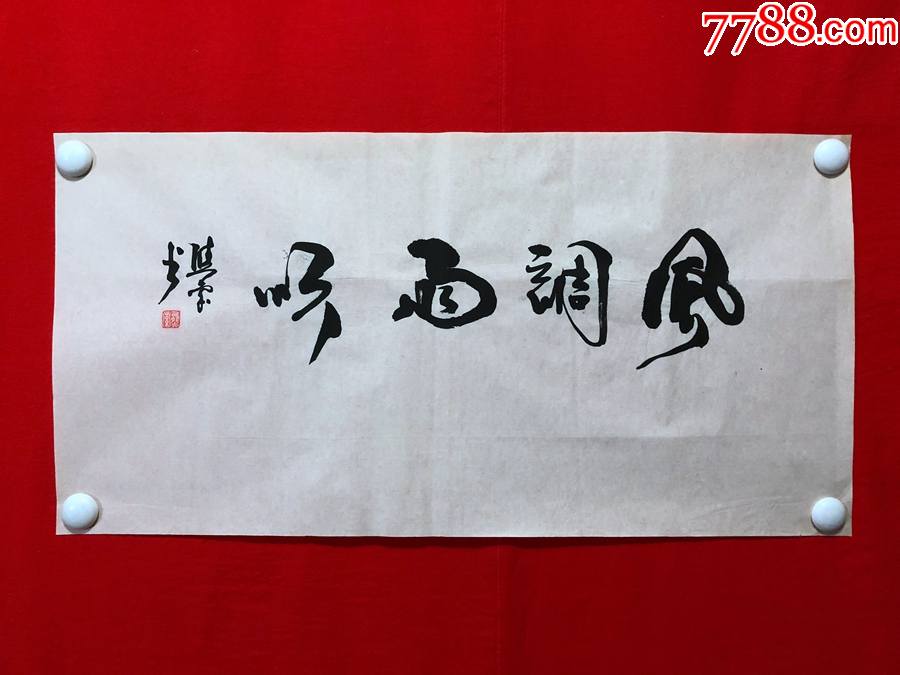 7788.com
風調雨順